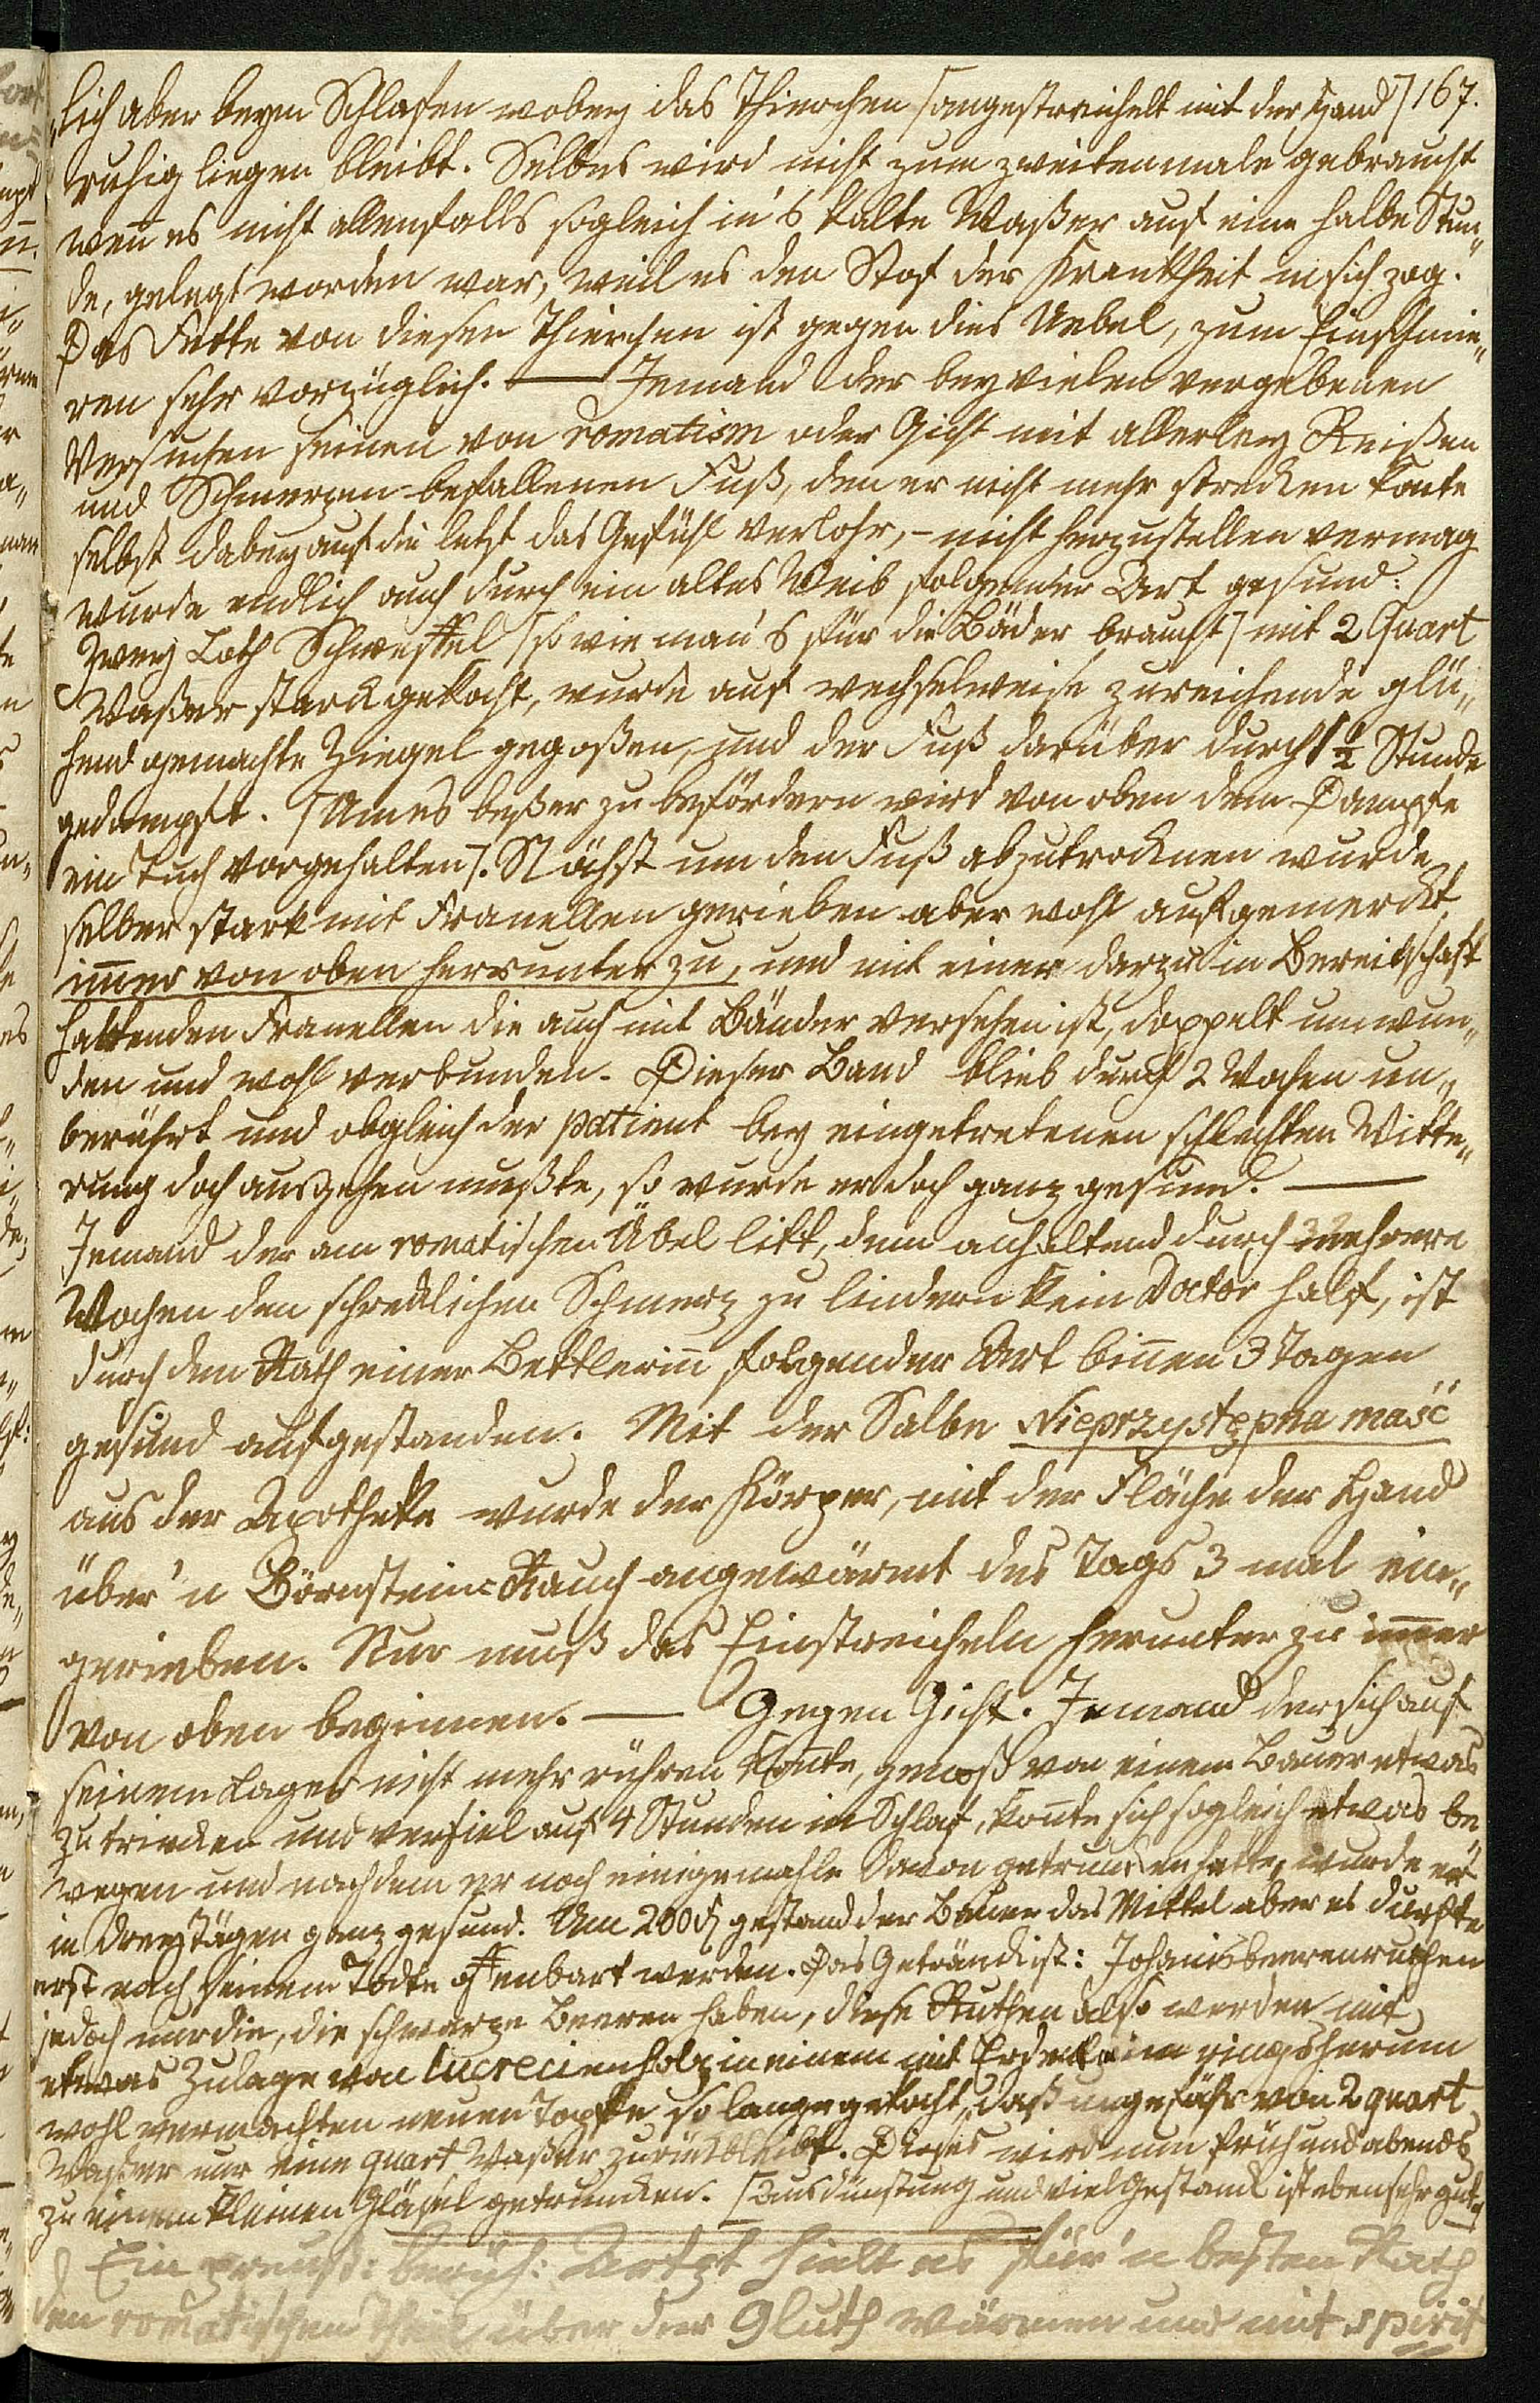 „lich aber beym Schlafen wobey das Thierchen [angestreichelt mit der Hand] 167.
ruhig liegen bleibt. Selbes wird nicht zum zweitenmale gebraucht
wen̄ es nicht allenfalls sogleich in's kalte Waßer auf eine halbe Stun„
de, gelegt worden war, weil es den Stof der Krankheit in sich zog.
Das Fette von diesen Thierchen ist gegen dies Uebel, zum Einschmie„
ren sehr vorzüglich. — Jemand der bey vielen vergebenen
Versuchen seinen von romatism oder Gicht mit allerley Reißen
und Schmerzen befallenen Fuß, den er nicht mehr strecken konte
selbst dabey auf die letzt das Gefühl verlohr, – nicht herzustellen vermag
wurde endlich auch durch ein altes Weib folgender Art gesund:
Zwey Loth Schweffel [so wie man's für die Bäder braucht] mit 2 Quart
Waßer starck gekocht, wurde auf wechselweise zureichende glü„
hend gemachte Ziegel gegoßen, und der Fuß darüber durch 1½ Stunde
gedampft. [Um es beßer zu befördern wird von oben dem Dampfe
ein Tuch vorgehalten]. Nächst um den Fuß abzutrocknen wurde
selber stark mit Franellen gerieben aber wohl aufgemerckt,
im̄er von oben herrunter zu, und mit einer darzu in Bereitschaft
haltenden Franellen die auch mit Bänder versehen ist, doppelt umwun„
den und wohl verbunden. Dieser Band blieb durch 2 Wochen un„
berührt und obgleich der patient bey eingetretenen schlechten Witte„
rung doch ausgehen mußte, so wurde er doch ganz gesund. —
Jemand der am romatischen Übel litt, dem anhaltend durch mehrere
Wochen den schrecklichen Schmerz zu lindern kein Doctor half, ist
durch den Rath einer Bettlerin̄ folgender Art bin̄en 3 Tagen
gesund aufgestanden. Mit der Salbe Nieprzystępna maść
aus der Apotheke wurde der Körper, mit der Fläche der Hand
über'n Börnstein=Rauch angewärmt des Tags 3 mal ein„
gerieben. Nur muß das Einstreicheln herunter zu im̄er
von oben beginnen. — Gegen Gicht. Jemand der sich auf
seinem Lager nicht mehr rühren kon̄te, genoß von einem Bauer etwas
zu trincken und verfiel auf 4 Stunden in Schlaf, kon̄te sich sogleich etwas be„
wegen und nachdem er noch einigemahle davon getruncken hatte, wurde er
in drey Tägen ganz gesund. Um 200 gestand der Bauer das Mittel aber es durfte
erst nach seinem Todte offenbart werden. Das Getränck ist: Johanisbeerenruthen
jedoch nur die, die schwarze Beeren haben, diese Ruthen also werden mit
etwas Zulage von lucrecienholz in einem mit Erde ringsherum
wohl vermachten neuen Topfe so lange gekocht, daß ungefähr von 2 quart
Waßer nur eine quart Waßer zurückbleibt. Dieses wird nun früh und abends
zu einem kleinen Gläsel getruncken. [Ausdünstung und viel Gestanck ist eben sehr gut.]
Ein preuß: berüh: Artzt hielt es für'n besten Rath
den romatischen Theil über der Gluth wärmen und mit spirit